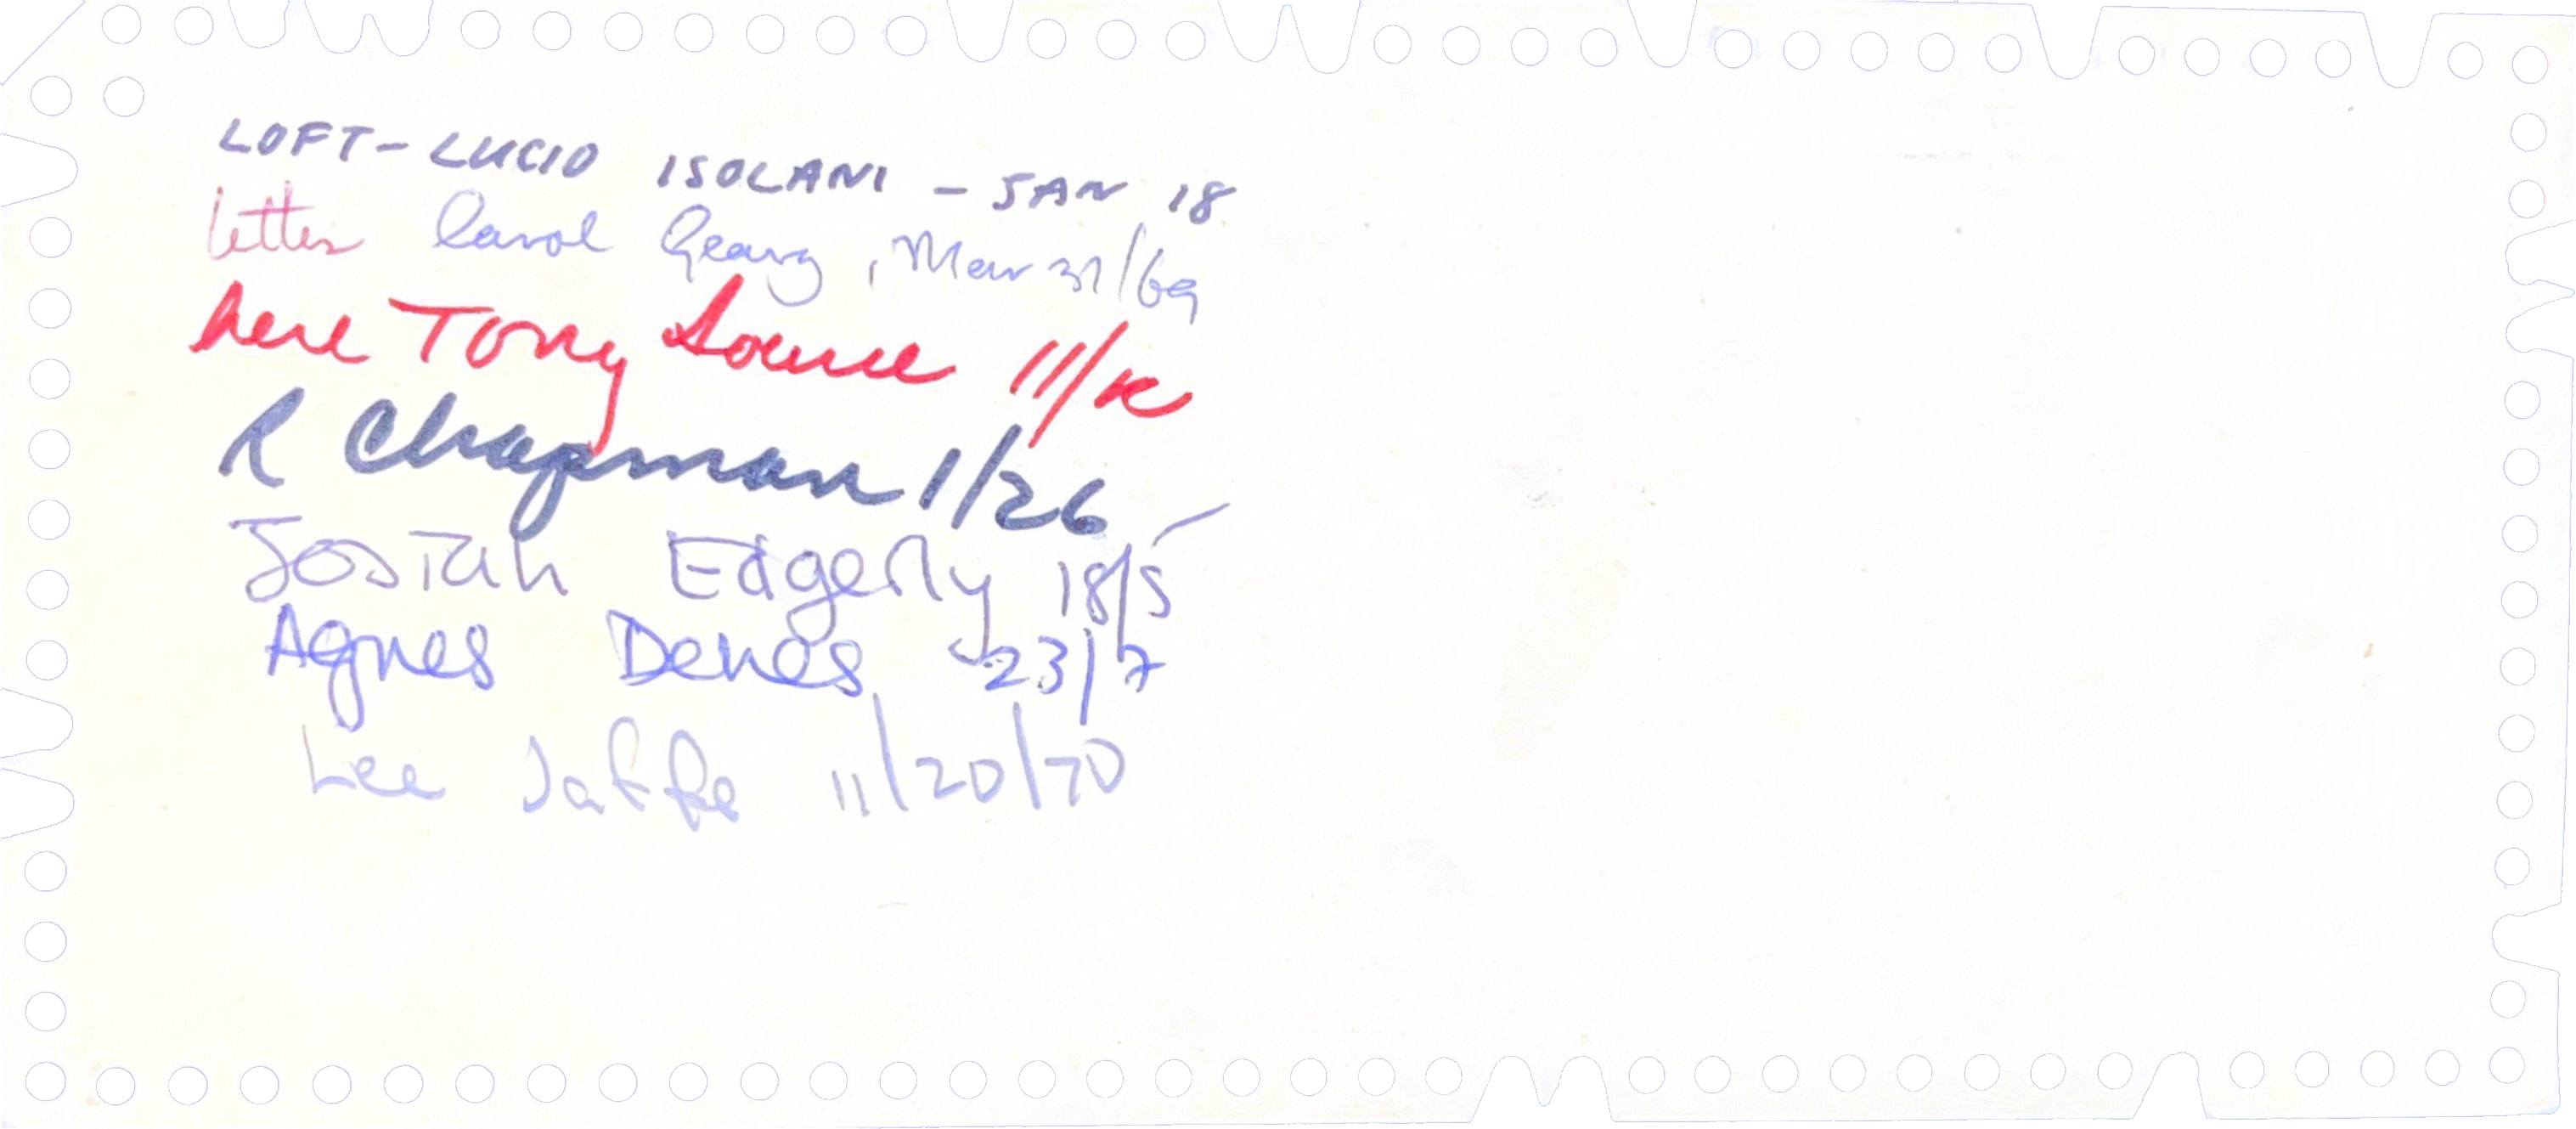 LOFT - LUCIO ISOLANI - JAN 18
letter Carol Geary, Mar 31/69
here Tony 11/
R Chapman 1/26
Josiah Edgerly 18/5
Agnes Denes 23/7
Lee Jaffe 11/20/70